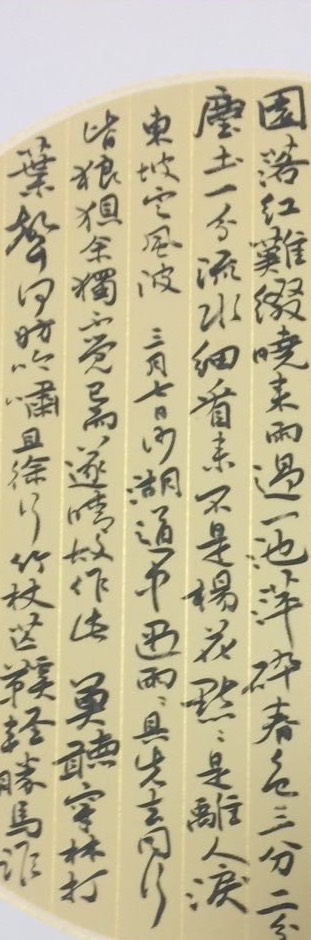 園落紅難綴曉來雨過一池萍碎春色三分二分
塵土一分流水細看來不是楊花點々是離人淚
東坡定風波 三月七日沙湖道中遇雨々具先去同行
皆狼狽余獨不覺已而遂晴故作此 莫聽穿林打
葉聲何妨吟嘯且徐行竹杖芒鞋輕勝馬誰